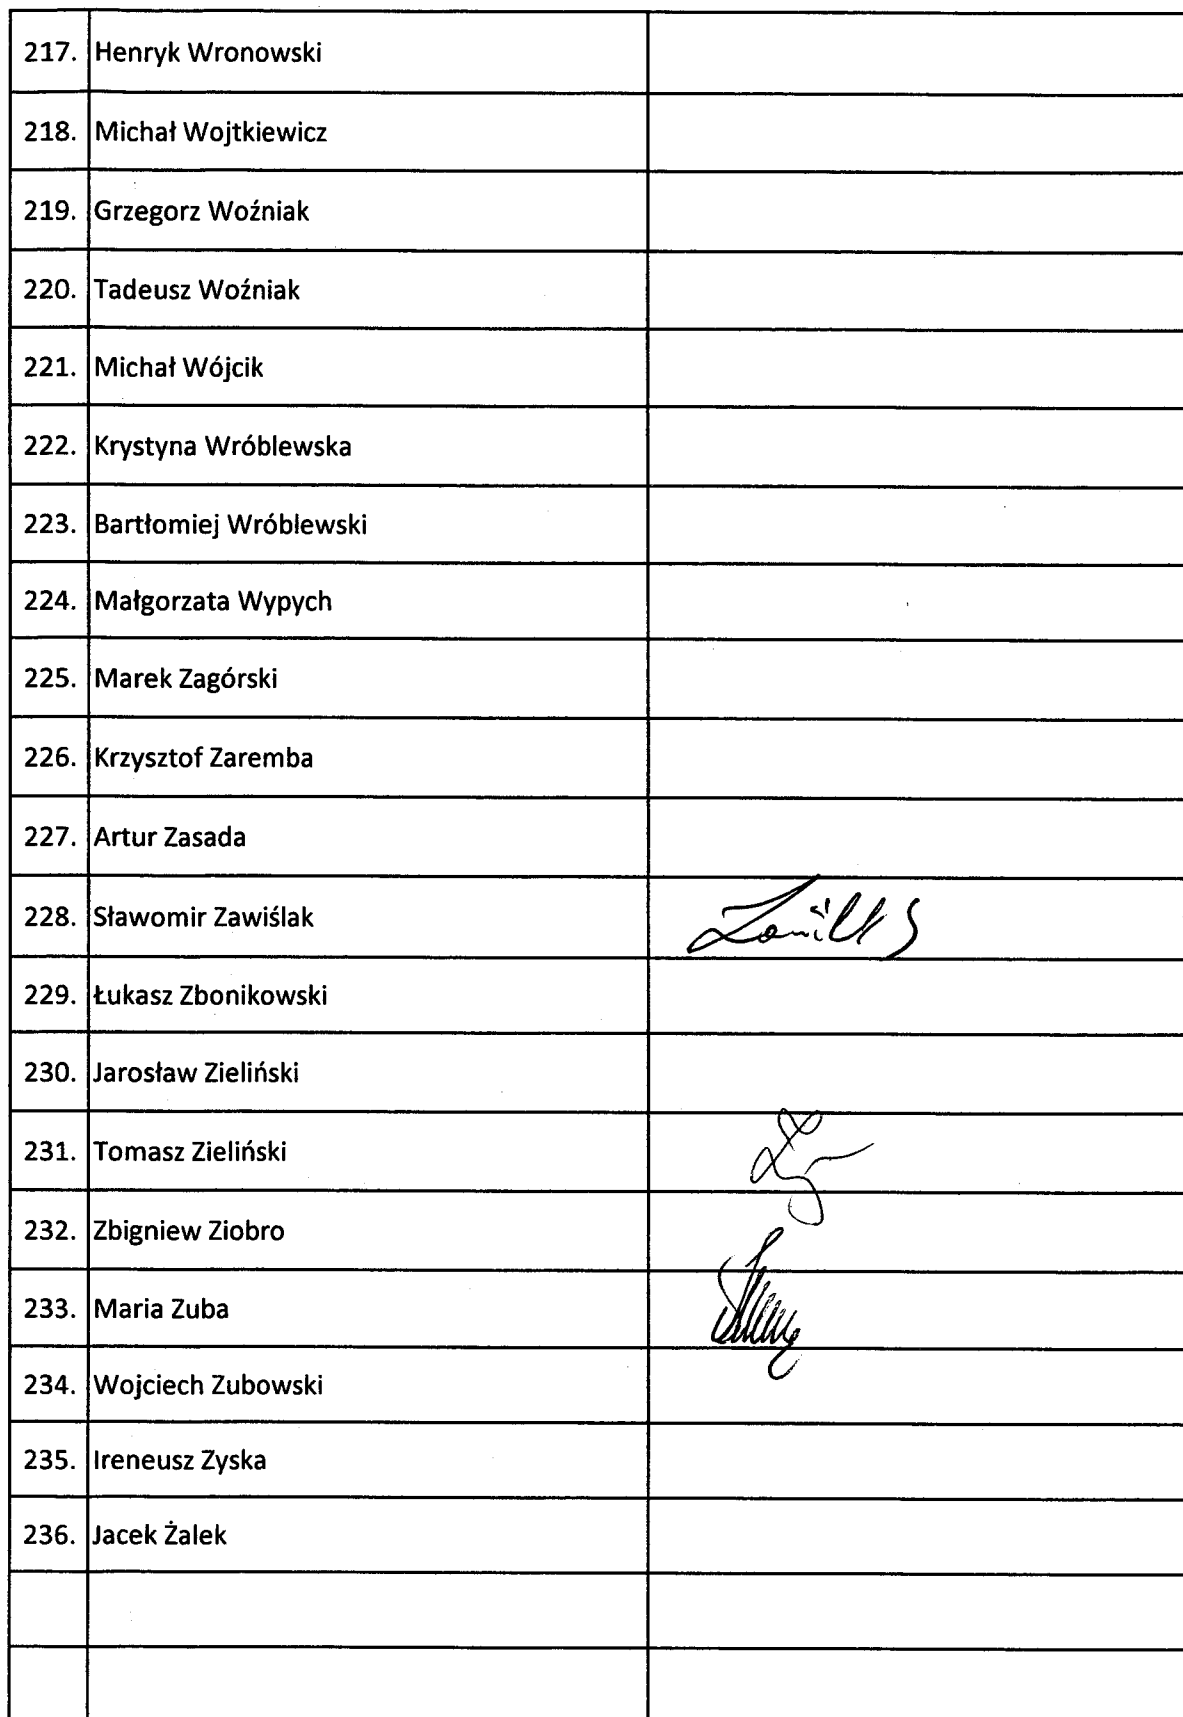 217. Henryk Wronowski
218. Michał Wojtkiewicz
219. Grzegorz Woźniak
220. Tadeusz Woźniak
221. Michał Wójcik
222. Krystyna Wróblewska
223. Bartłomiej Wróblewski
224. Małgorzata Wypych
225. Marek Zagórski
226. Krzysztof Zaremba
227. Artur Zasada
228. Sławomir Zawiślak
229. Łukasz Zbonikowski
230. Jarosław Zieliński
231. Tomasz Zieliński
232. Zbigniew Ziobro
233. Maria Zuba
234. Wojciech Zubowski
235. Ireneusz Zyska
236. Jacek Żalek